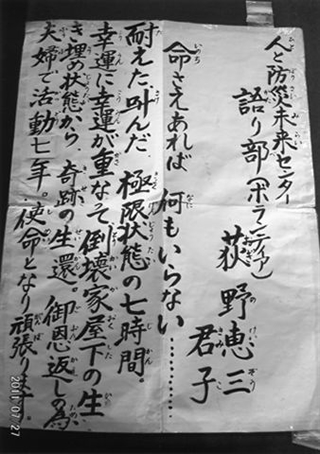 人と防災未来センター
語り部(ボランティア)
荻野恵三
君子
命さえあれば 何もいらない…………
耐えた叫んだ 極限状態の七時間。
幸運に幸運が重なって倒壊家屋下の生
き埋め状態から、奇跡の生還。御恩返しの為、
夫婦で活動七年。使命となり頑張ります。
2011 07 27